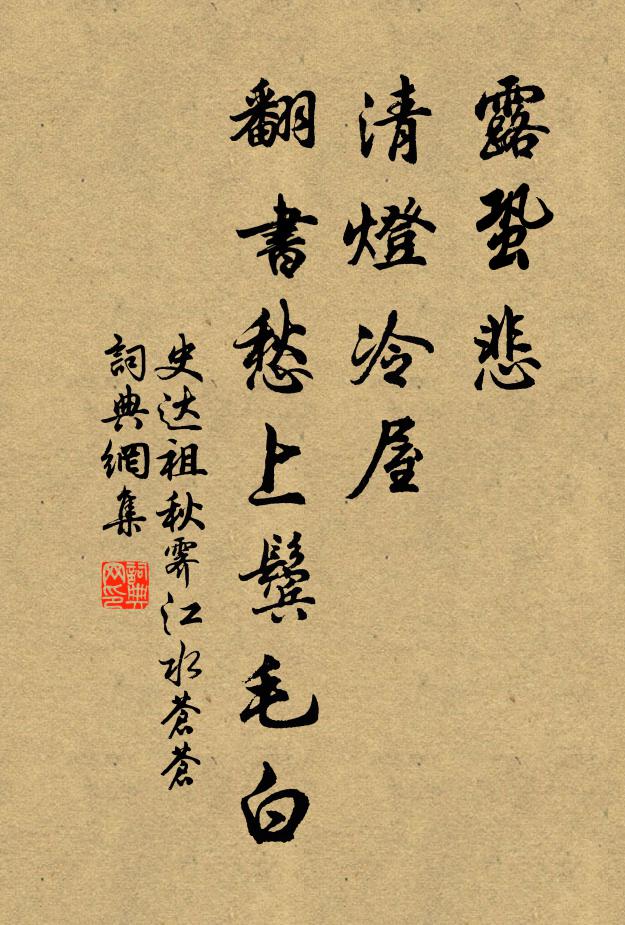 露蛩悲
清燈冷屋
翻書愁上鬢毛白
史达祖秋霽江水蒼蒼
詞典網集
詞典网印